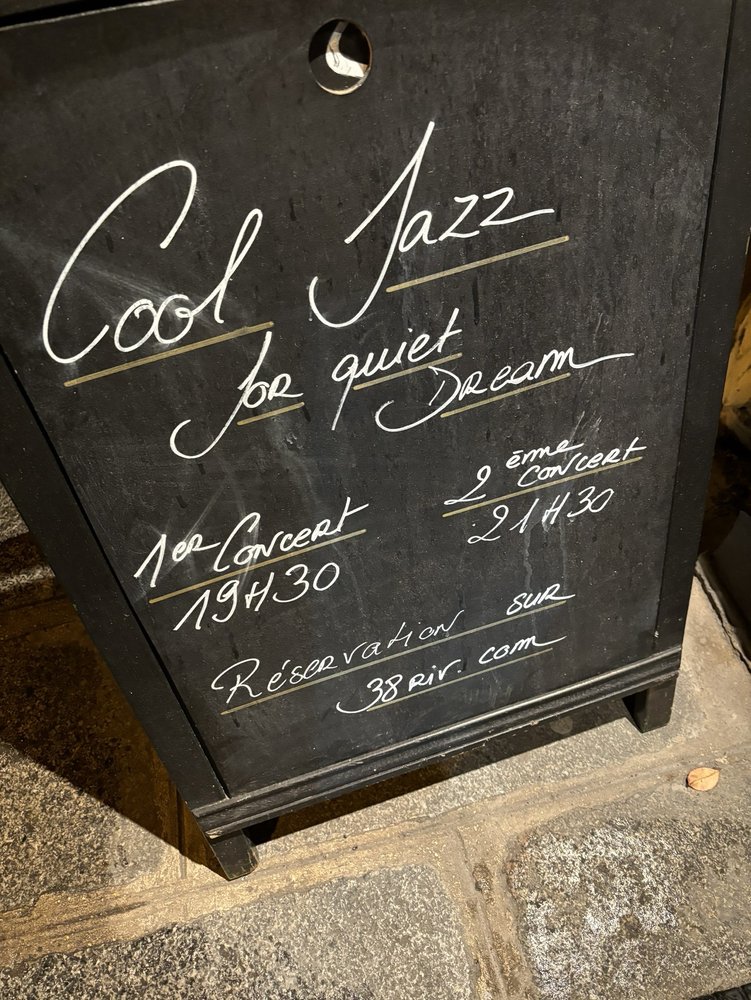 Cool Jazz
for quiet
Dream
1er Concert
19H30
2ème
Concert
21H30
Réservation sur
38riv.com